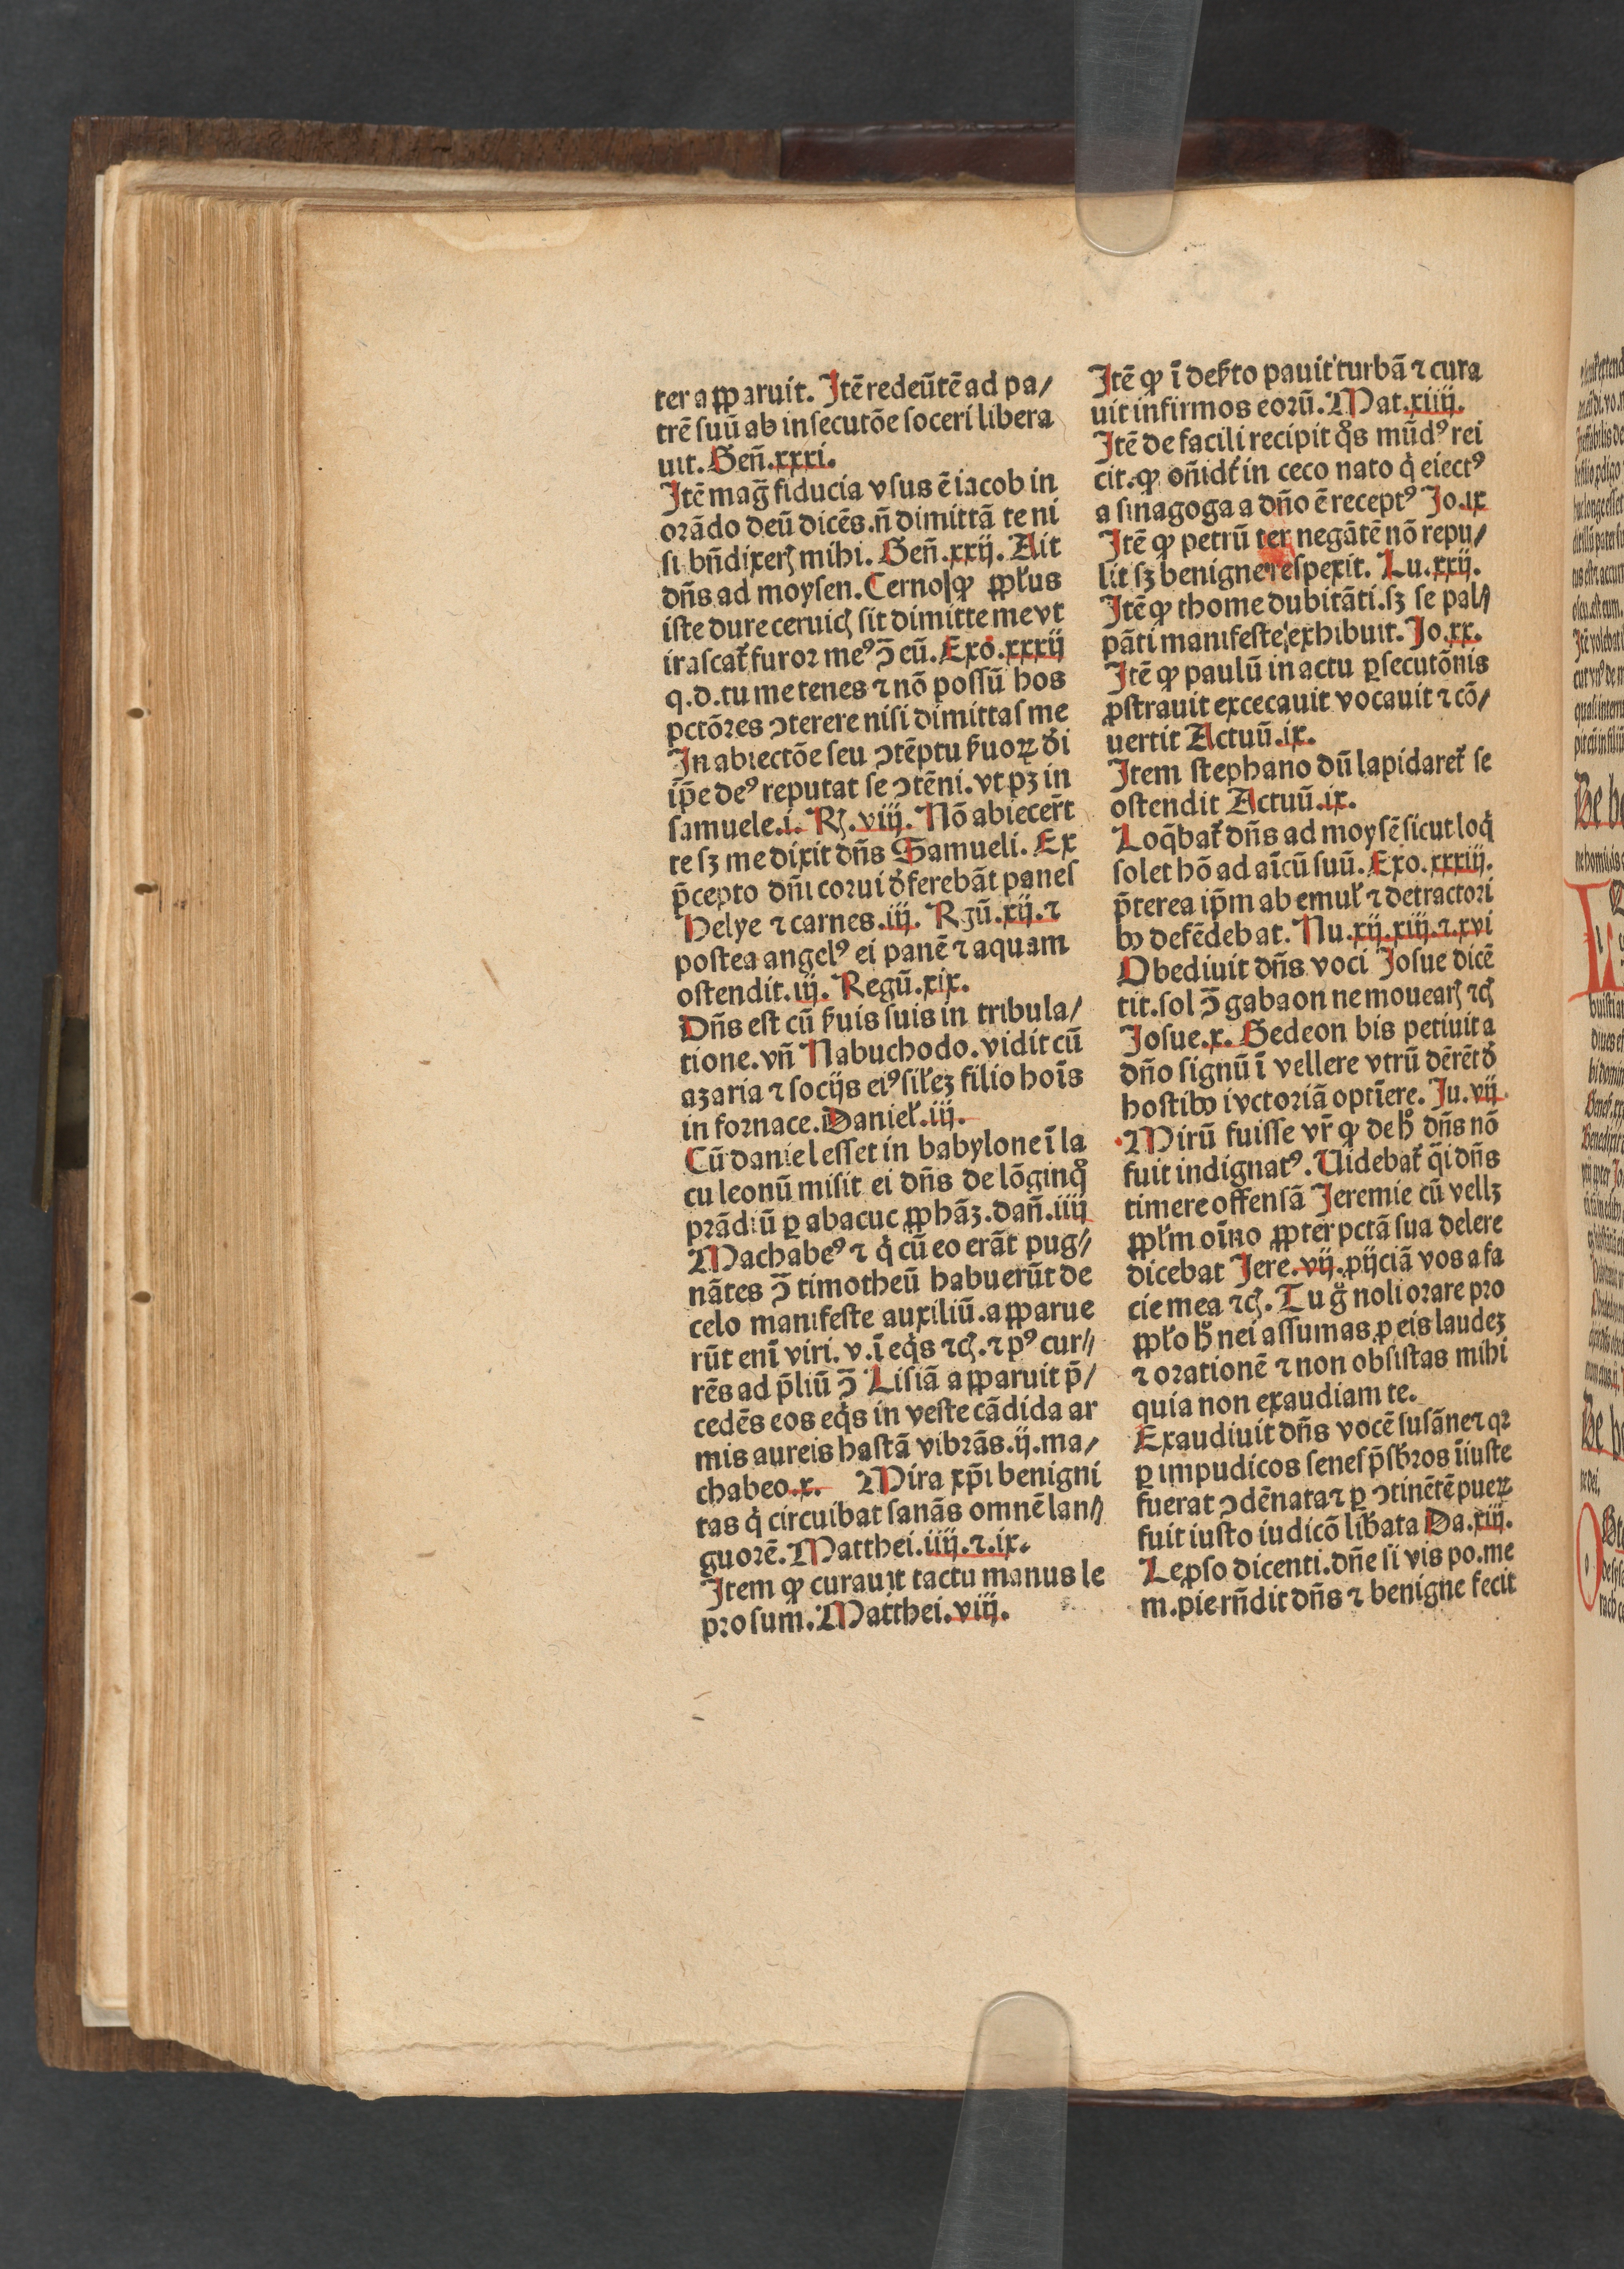 ter aꝓparuit. Itē redeūtē ad pa/
trē suū ab insecutōe soceri libera
uit. Geñ.xxxi.
Itē mag̃ fiducia vsus ē iacob in
orādo deū dicēs.ñ dimittā te ni
si bñdixerꝭ mihi. Geñ.xxij. Ait
dñs ad moysen. Cerno ꝙ ꝓpl̓us
iste dure ceruicꝭ sit dimitte me vt
irascat̉ furor meꝰ ↄ̄ eū. Exo.xxxij
q.d.tu me tenes ⁊ nō possū hos
pctōres ↄterere nisi dimittas me
In abiectōe seu ↄtēptu ẜuoꝝ d̓i
ip̄e deꝰ reputat se ↄtēni. vt pꝫ in
samuele.i. Rꝭ.viij. Nō abiecer̄t
te sꝫ me dixit dñs Samueli. Ex
p̄cepto dñi corui d̓ferebāt panes
Helye ⁊ carnes.iij. Rgū.xij.⁊
postea angelꝰ ei panē ⁊ aquam
ostendit.iij. Regū.xix.
Dñs est cū ẜuis suis in tribula/
tione.vñ Nabuchodo.vidit cū
azaria ⁊ socijs eiꝰ sil̓eꝫ filio hoīs
in fornace.Daniel̓.iij.
Cū daniel esset in babylone ī la
cu leonū misit ei dñs de lōginq̊
prādiū ꝑ abacuc ꝓphāꝫ.dañ.iiij
Machabeꝰ ⁊ q̇ cū eo erāt pug//
nātes ↄ̄ timotheū habuerūt de
celo manifeste auxiliū.aꝓparue
rūt enī viri.v.ī eq̇s ⁊cꝭ.⁊ pꝰ cur//
rēs ad p̄liū ↄ̄ Lisiā aꝓparuit p̄/
cedēs eos eq̇s in veste cādida ar
mis aureis hastā vibrās.ij.ma/
chabeo.x. Mira xp̄i benigni
tas q̇ circuibat sanās omnē lan//
guorē.Matthei.iiij.⁊.ix.
Item ꝙ curauit tactu manus le
prosum.Matthei.viij.
Itē ꝙ ī deẜto pauit turbā ⁊ cura
uit infirmos eorū.Mat.xiiij.
Itē de facili recipit q̊s mūdꝰ rei
cit.ꝙ oñidt̉ in ceco nato q̇ eiectꝰ
a sinagoga a dño ē receptꝰ Jo.ix
Itē ꝙ petrū ter negātē nō repu/
lit sꝫ benigne respexit. Lu.xxij.
Itē ꝙ thome dubitāti.sꝫ se pal//
pāti manifeste exhibuit. Jo.xx.
Itē ꝙ paulū in actu ꝑsecutōnis
ꝓstrauit excecauit vocauit ⁊ cō/
uertit Actuū.ix.
Item stephano dū lapidaret̉ se
ostendit Actuū.ix.
Loq̄bat̉ dñs ad moysē sicut loq̇
solet hō ad aīcū suū. Exo.xxxiij.
p̄terea ip̄m ab emul̓ ⁊ detractori
bꝰ defēdebat. Nu.xij.xiij.⁊.xvi
Obediuit dñs voci Josue dicē
tit.sol ↄ̄ gabaon ne mouearꝭ ⁊cꝭ
Josue.x. Gedeon bis petiuit a
dño signū ī vellere vtrū dērēt d̓
hostibꝰ ivctoriā optīere. Ju.vij
Mirū fuisse vr̄ ꝙ de h̊ dñs nō
fuit indignatꝰ. Uidebat̉ q̄i dñs
timere offensā Jeremie cū vellꝫ
ꝓpl̓m oīno ꝓpter pctā sua delere
dicebat Jere.vij.ꝓijciā vos a fa
cie mea ⁊cꝭ. Tu g̊ noli orare pro
ꝓpl̓o h̊ nei assumas ꝓ eis laudeꝫ
⁊ orationē ⁊ non obsistas mihi
quia non exaudiam te.
Exaudiuit dñs vocē susāne⁊ qꝛ
ꝑ impudicos senes p̄sb̓ros īiuste
fuerat ↄdēnata⁊ ꝑ ↄtinētē pueꝝ
fuit iusto iudicō lib̓ata Da.xiij.
Leꝓso dicenti.dñe si vis po.me
m.pie rñdit dñs ⁊ benigne fecit